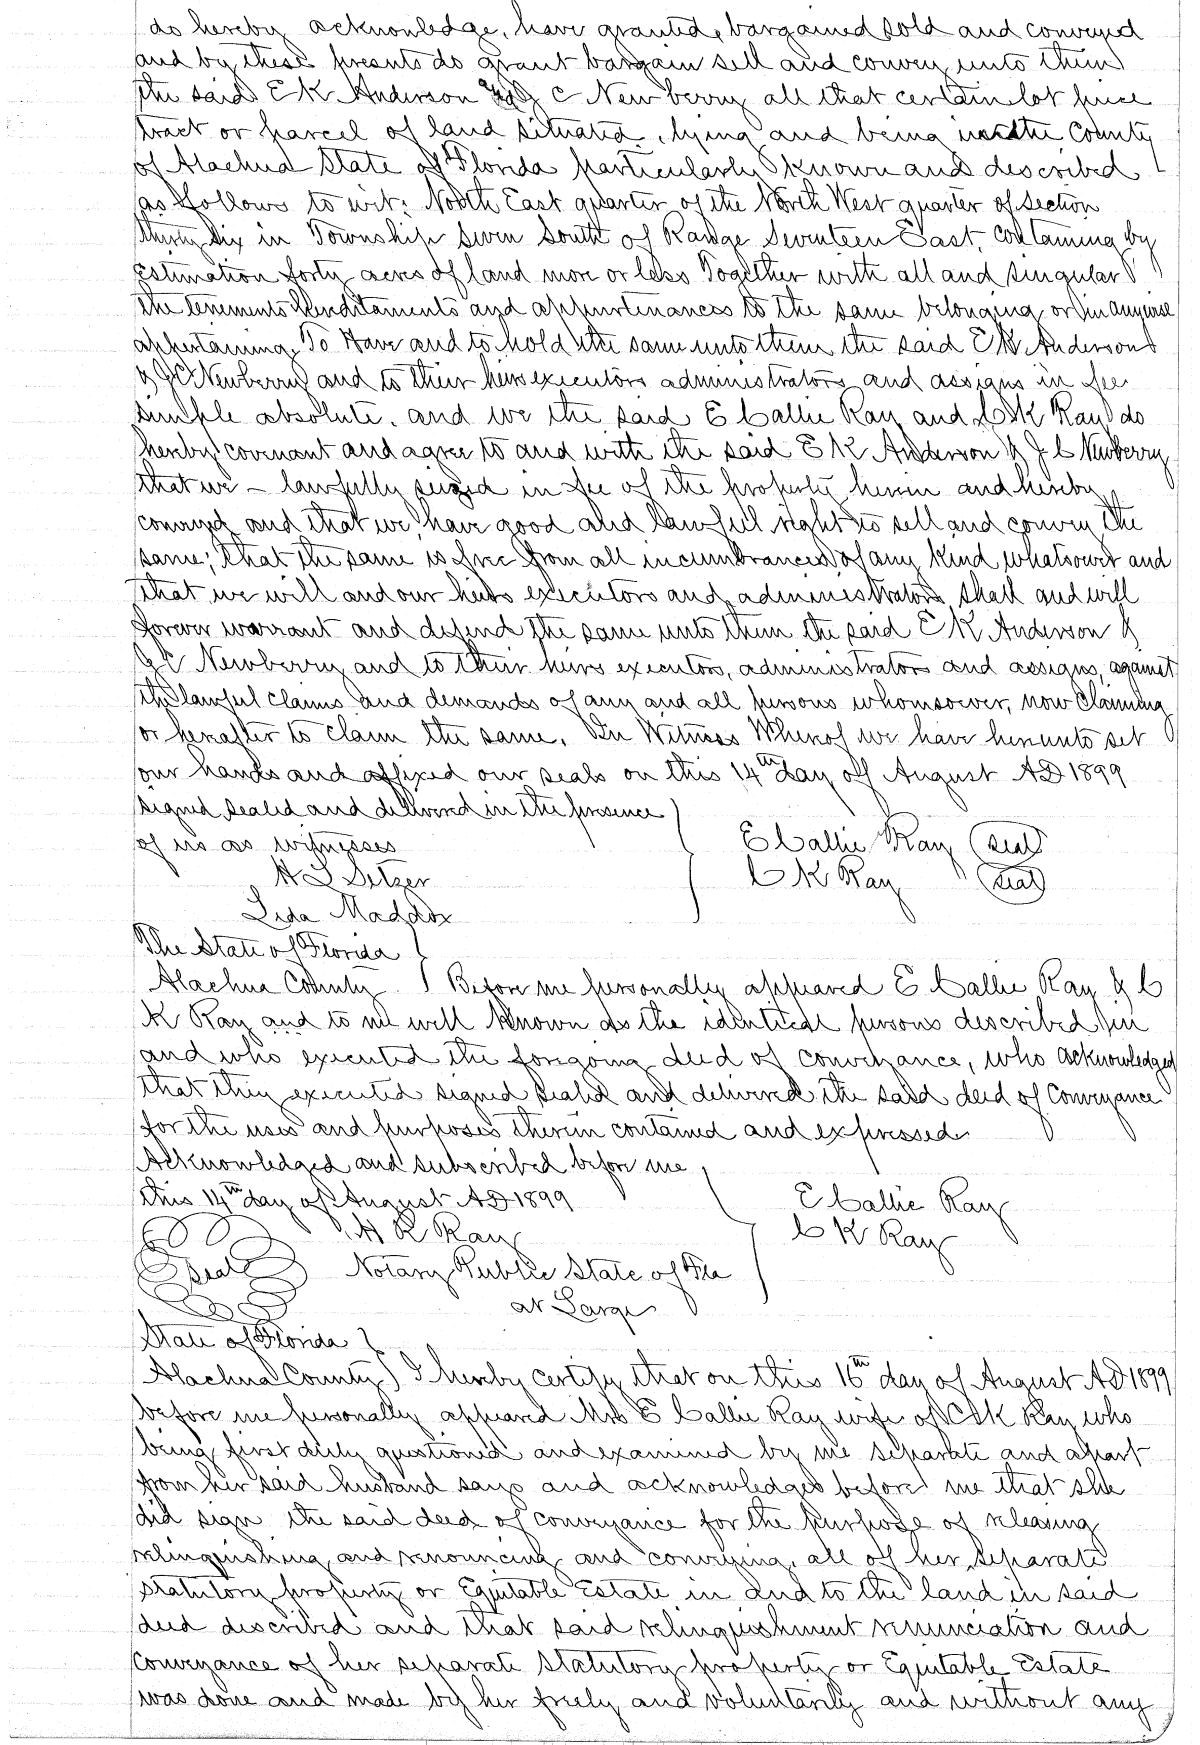 do hereby acknowledge, have granted, bargained sold and conveyed
and by these presents do grant bargain sell and convey unto them
the said E K Anderson & J C Newberry all that certain lot piece
tract or parcel of land situated, lying and being in the County
of Alachua State of Florida particularly known and described
as follows to wit: North East quarter of the North West quarter of section
thirty six in Township seven South of Range Seventeen East, containing by
estimation forty acres of land more or less Together with all and singular
the tenements hereditaments and appurtenances to the same belonging or in anywise
appertaining. To Have and to hold the same unto them the said E K Anderson
& J C Newberry and to their heirs executors administrators and assigns in fee
simple absolute. and we the said E Callie Ray and C K Ray do
hereby covenant and agree to and with the said E K Anderson & J C Newberry
that we – lawfully seized in fee of the property herein and hereby
conveyed and that we have good and lawful right to sell and convey the
same; that the same is free from all incumbrances of any kind whatsoever and
that we will and our heirs executors and administrators shall and will
forever warrant and defend the same unto them the said E K Anderson &
J C Newberry and to their heirs executors, administrators and assigns, against
the lawful claims and demands of any and all persons whomsoever, now claiming
or hereafter to claim the same. In Witness Whereof we have hereunto set
our hands and affixed our seals on this 14th day of August AD 1899
signed sealed and delivered in the presence
of us as witnesses
E Callie Ray (seal)
H L Setzer
C K Ray (seal)
Lida Maddox
The State of Florida
Alachua County Before me personally appeared E Callie Ray & C
K Ray and to me well known as the identical persons described in
and who executed the foregoing deed of conveyance, who acknowledged
that they executed signed sealed and delivered the said deed of Conveyance
for the uses and purposes therein contained and expressed
Acknowledged and subscribed before me
this 14th day of August AD 1899
E Callie Ray
H R Ray
C K Ray
Seal Notary Public State of Fla
at Large
State of Florida
Alachua County) I hereby certify that on this 16th day of August AD 1899
before me personally appeared Mrs E Callie Ray wife of C K Ray who
being first duly questioned and examined by me separate and apart
from her said husband says and acknowledges before me that she
did sign the said deed of conveyance for the purpose of releasing
relinquishing and renouncing and conveying, all of her separate
statutory property or Equitable Estate in and to the land in said
deed described and that said relinquishment renunciation and
conveyance of her separate statutory property or Equitable Estate
was done and made by her freely and voluntarily and without any